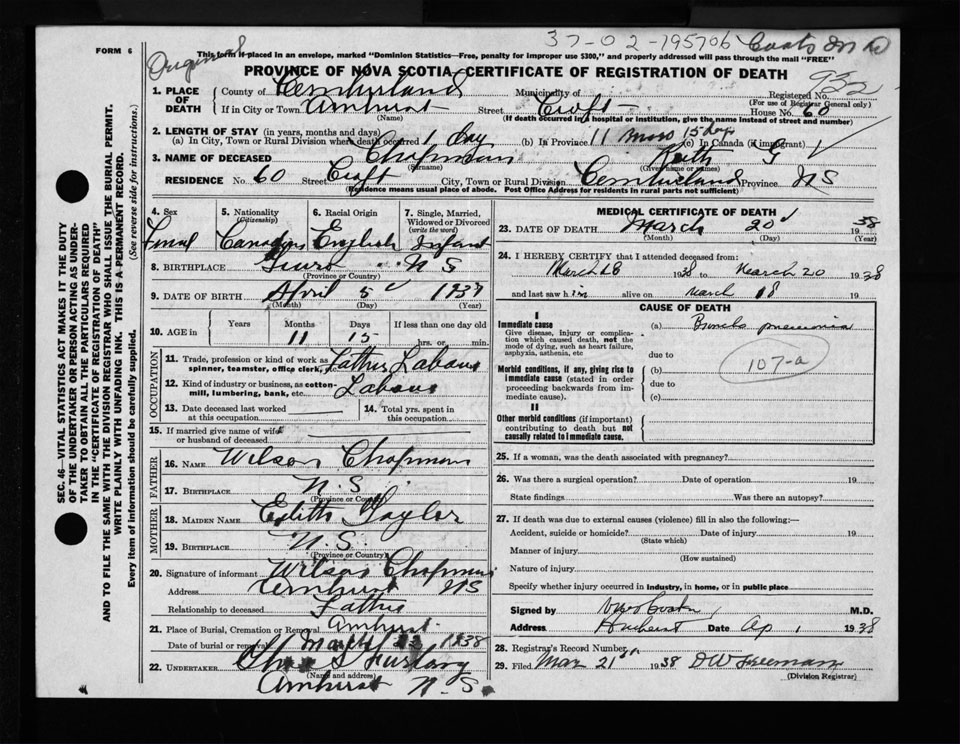 37-02-195706 Coats M D
FORM 6
Original
This form if placed in an envelope, marked "Dominion Statistics—Free, penalty for improper use $300," and properly addressed will pass through the mail "FREE"
PROVINCE OF NOVA SCOTIA—CERTIFICATE OF REGISTRATION OF DEATH
932
1. PLACE OF DEATH
County of Cumberland Municipality of Registered No.
(For use of Registrar General only)
If in City or Town Amherst Street Croft House No. 60
(Name) (If death occurred in a hospital or institution, give the name instead of street and number)
2. LENGTH OF STAY (in years, months and days)
(a) In City, Town or Rural Division where death occurred 1 day (b) In Province 11 mos 15 days (c) In Canada (if immigrant)
3. NAME OF DECEASED Chapman Keith G
(Surname) (Given name or names)
RESIDENCE No. 60 Street Croft City, Town or Rural Division Cumberland Province N S
(Residence means usual place of abode. Post Office Address for residents in rural parts not sufficient)
SEC. 46—VITAL STATISTICS ACT MAKES IT THE DUTY
OF THE UNDERTAKER OR PERSON ACTING AS UNDER-
TAKER TO OBTAIN ALL THE PARTICULARS REQUIRED
IN THE "CERTIFICATE OF REGISTRATION OF DEATH"
AND TO FILE THE SAME WITH THE DIVISION REGISTRAR WHO SHALL ISSUE THE BURIAL PERMIT.
WRITE PLAINLY WITH UNFADING INK. THIS IS A PERMANENT RECORD.
Every item of information should be carefully supplied. (See reverse side for instructions.)
4. Sex 5. Nationality 6. Racial Origin 7. Single, Married,
(Citizenship) Widowed or Divorced
(write the word)
Canadian English Infant
8. BIRTHPLACE Truro N S
(Province or Country)
9. DATE OF BIRTH April 5 1937
(Month) (Day) (Year)
10. AGE in
Years Months Days If less than one day old
11 15 hrs. or min.
OCCUPATION
11. Trade, profession or kind of work as spinner, teamster, office clerk, Father Labour
12. Kind of industry or business, as cotton-mill, lumbering, bank, etc. Labour
13. Date deceased last worked at this occupation
14. Total yrs. spent in this occupation
15. If married give name of wife or husband of deceased
FATHER
16. NAME Wilson Chapman
17. BIRTHPLACE N. S.
(Province or Country)
MOTHER
18. MAIDEN NAME Edith Gayler
19. BIRTHPLACE N. S.
(Province or Country)
20. Signature of informant Wilson Chapman
Address Amherst N S
Relationship to deceased Father
21. Place of Burial, Cremation or Removal Amherst
Date of burial or removal March 22 1938
22. UNDERTAKER Chas S
(Name and address)
Amherst N. S.
MEDICAL CERTIFICATE OF DEATH
23. DATE OF DEATH March 20 1938
(Month) (Day) (Year)
24. I HEREBY CERTIFY that I attended deceased from:
March 18 1938 to March 20 1938
and last saw him alive on March 18 19
CAUSE OF DEATH
I
Immediate cause
Give disease, injury or complication which caused death, not the mode of dying, such as heart failure, asphyxia, asthenia, etc
(a) Broncho pneumonia
due to
Morbid conditions, if any, giving rise to immediate cause (stated in order proceeding backwards from immediate cause).
(b) 107-a
due to
(c)
II
Other morbid conditions (if important) contributing to death but not causally related to immediate cause.
25. If a woman, was the death associated with pregnancy?
26. Was there a surgical operation? Date of operation 19
State findings Was there an autopsy?
27. If death was due to external causes (violence) fill in also the following:—
Accident, suicide or homicide? Date of injury 19
(State which)
Manner of injury
(How sustained)
Nature of injury
Specify whether injury occurred in industry, in home, or in public place
Signed by M.D.
Address Amherst Date Ap 1 1938
28. Registrar's Record Number
29. Filed Mar 21st 1938 D W Freeman
(Division Registrar)